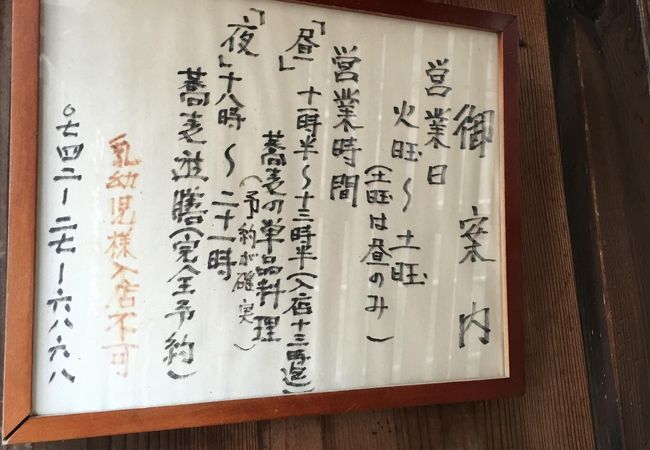 御案内
営業日
火旺〜土旺
(土旺は昼のみ)
営業時間
「昼」十一時半〜十三時半(入店十三時迄)
蕎麦の単品料理
(予約が確実)
「夜」十八時〜二十一時
蕎麦遊膳(完全予約)
乳幼児様入店不可
〇七四二ー二七ー六八六八